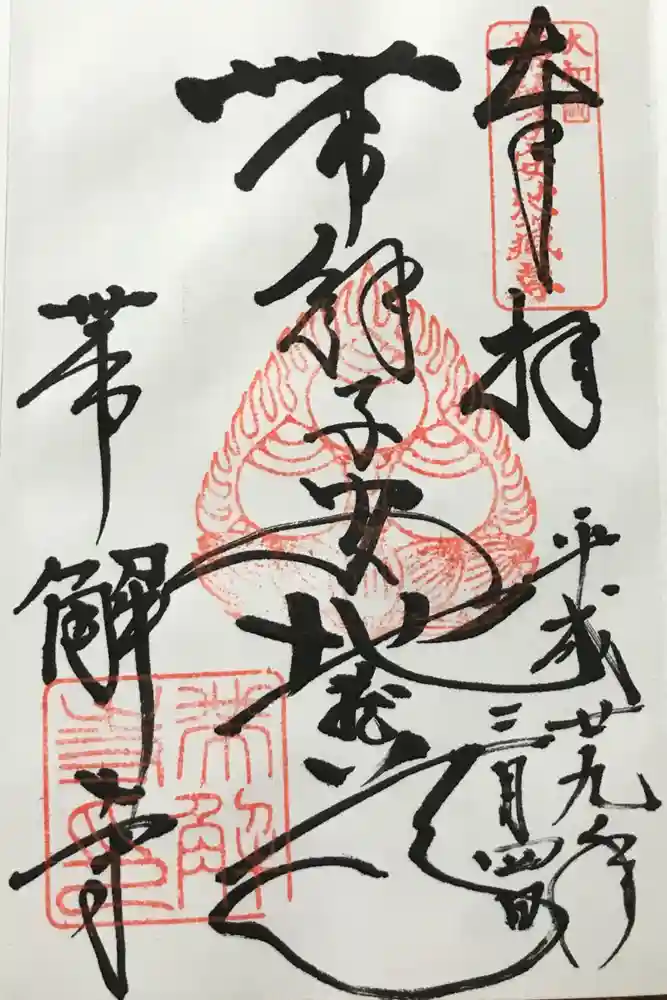 奉拝
平成廿九年
三月四日
大和国
子安地蔵尊
帯解子安地蔵
帯解寺
帯解
寺印